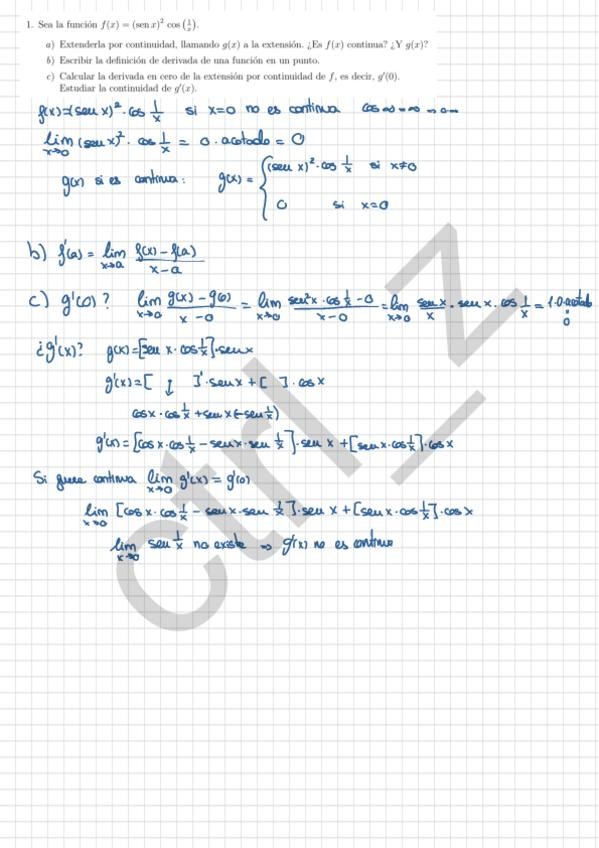 1. Sea la función f(x) = (sen x)² cos (1/x).
a) Extenderla por continuidad, llamando g(x) a la extensión. ¿Es f(x) continua? ¿Y g(x)?
b) Escribir la definición de derivada de una función en un punto.
c) Calcular la derivada en cero de la extensión por continuidad de f, es decir, g'(0).
Estudiar la continuidad de g'(x).
f(x)=(sen x)² · cos 1/x si x=0 no es continua
lim x→0 (sen x)² · cos 1/x = 0 · acotado = 0
g(x) si es continua: g(x) = { (sen x)² · cos 1/x si x≠0
0 si x=0
b) f'(a) = lim x→a f(x) – f(a) / x – a
c) g'(0)? lim x→0 g(x) – g(0) / x – 0 = lim x→0 sen²x · cos 1/x – 0 / x – 0 = lim x→0 sen x / x · sen x · cos 1/x = 1·0·acotado = 0
¿g'(x)? g(x) = [sen x · cos 1/x] · sen x
g'(x) = [ ↓ ]' · sen x + [ ] · cos x
cos x · cos 1/x + sen x (–sen 1/x)
g'(x) = [cos x · cos 1/x – sen x · sen 1/x] · sen x + [sen x · cos 1/x] · cos x
Si fuese continua lim x→0 g'(x) = g'(0)
lim x→0 [cos x · cos 1/x – sen x · sen 1/x] · sen x + [sen x · cos 1/x] · cos x
lim x→0 sen 1/x no existe ⇒ g'(x) no es continua
ctrl_Z